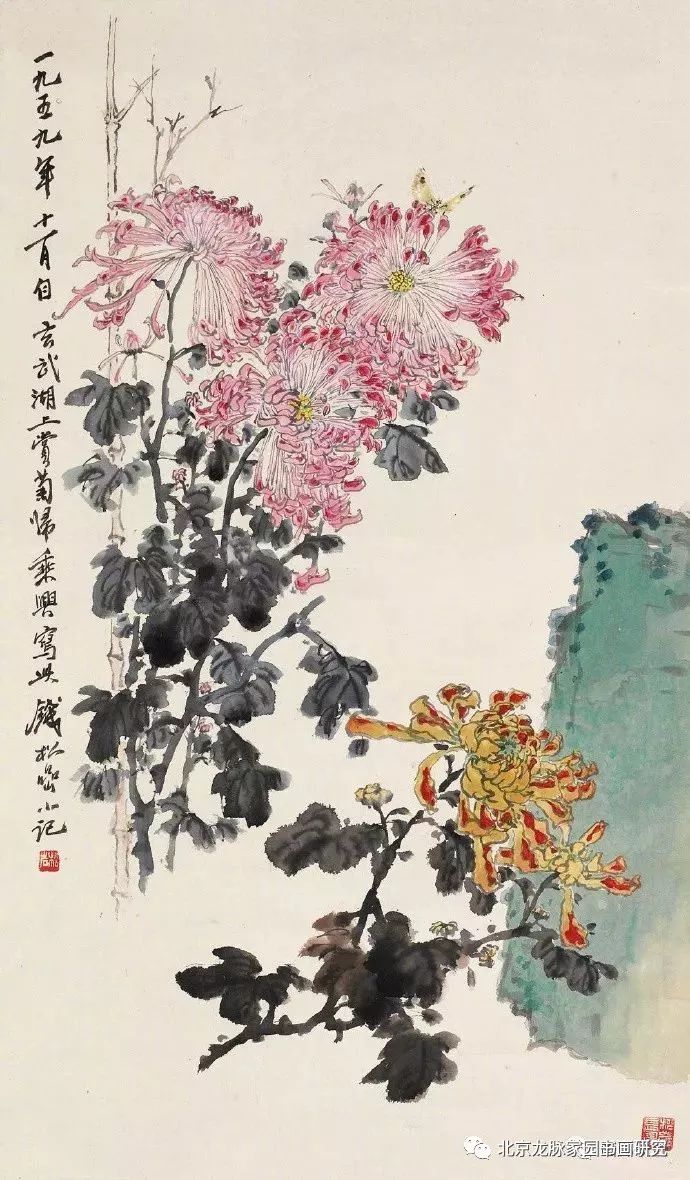 一九五九年十一月自玄武湖上賞菊歸乘興寫此錢松喦小記
北京龙脉家园书画研究